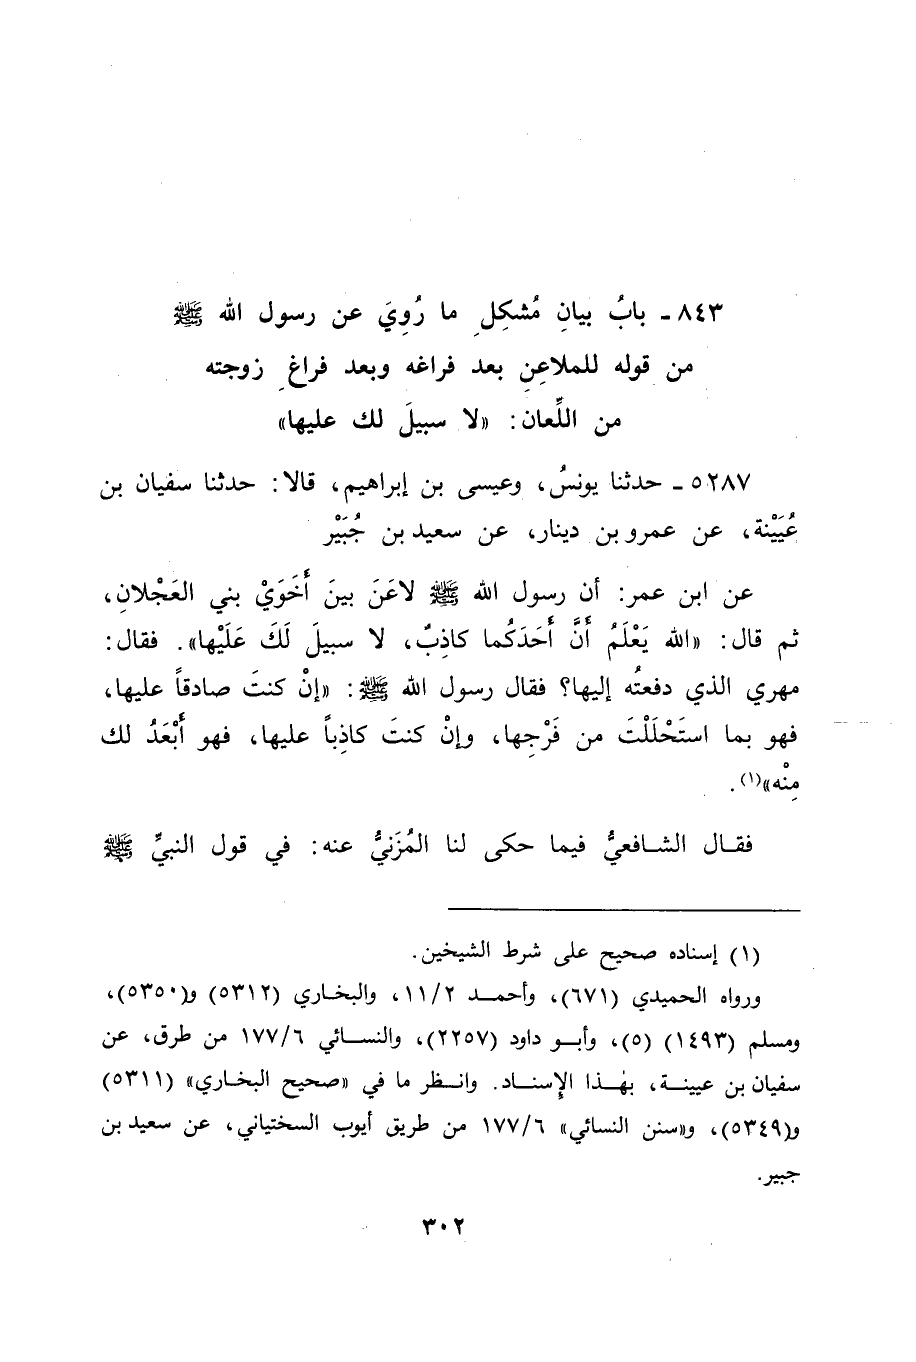 ٨٤٣ـ بابُ بيانِ مُشكِلِ ما رُوِيَ عن رسول الله ﷺ
من قوله للملاعِنِ بعد فراغه وبعد فراغِ زوجته
من اللِّعان: «لا سبيلَ لك عليها»
٥٢٨٧ ـ حدثنا يونسُ، وعيسى بن إبراهيم، قالا: حدثنا سفيان بن
عُيَيْنة، عن عمرو بن دينار، عن سعيد بن جُبَيْر
عن ابن عمر: أن رسول الله ﷺ لاعَنَ بينَ أَخَوَيْ بني العَجْلانِ،
ثم قال: «الله يَعْلَمُ أَنَّ أَحَدَكُما كاذِبٌ، لا سبيلَ لَكَ عَلَيْها». فقال:
مهري الذي دفعتُه إليها؟ فقال رسول الله ﷺ: «إنْ كنتَ صادقاً عليها،
فهو بما استَحْلَلْتَ من فَرْجِها، وإنْ كنتَ كاذِباً عليها، فهو أَبْعَدُ لك
مِنْه»(١).
فقـال الشـافعيُّ فيما حكى لنا المُزَنيُّ عنه: في قول النبيِّ ﷺ
(١) إسناده صحيح على شرط الشيخين.
ورواه الحميدي (٦٧١)، وأحمـد ١١/٢، والبخـاري (٥٣١٢) و(٥٣٥٠)،
ومسلم (١٤٩٣) (٥)، وأبـو داود (٢٢٥٧)، والنسـائي ١٧٧/٦ من طرق، عن
سفيان بن عيينـة، بهٰـذا الإسنـاد. وانـظر ما في «صحيح البخاري» (٥٣١١)
و(٥٣٤٩)، و«سنن النسائي» ١٧٧/٦ من طريق أيوب السختياني، عن سعيد بن
جبير.
٣٠٢